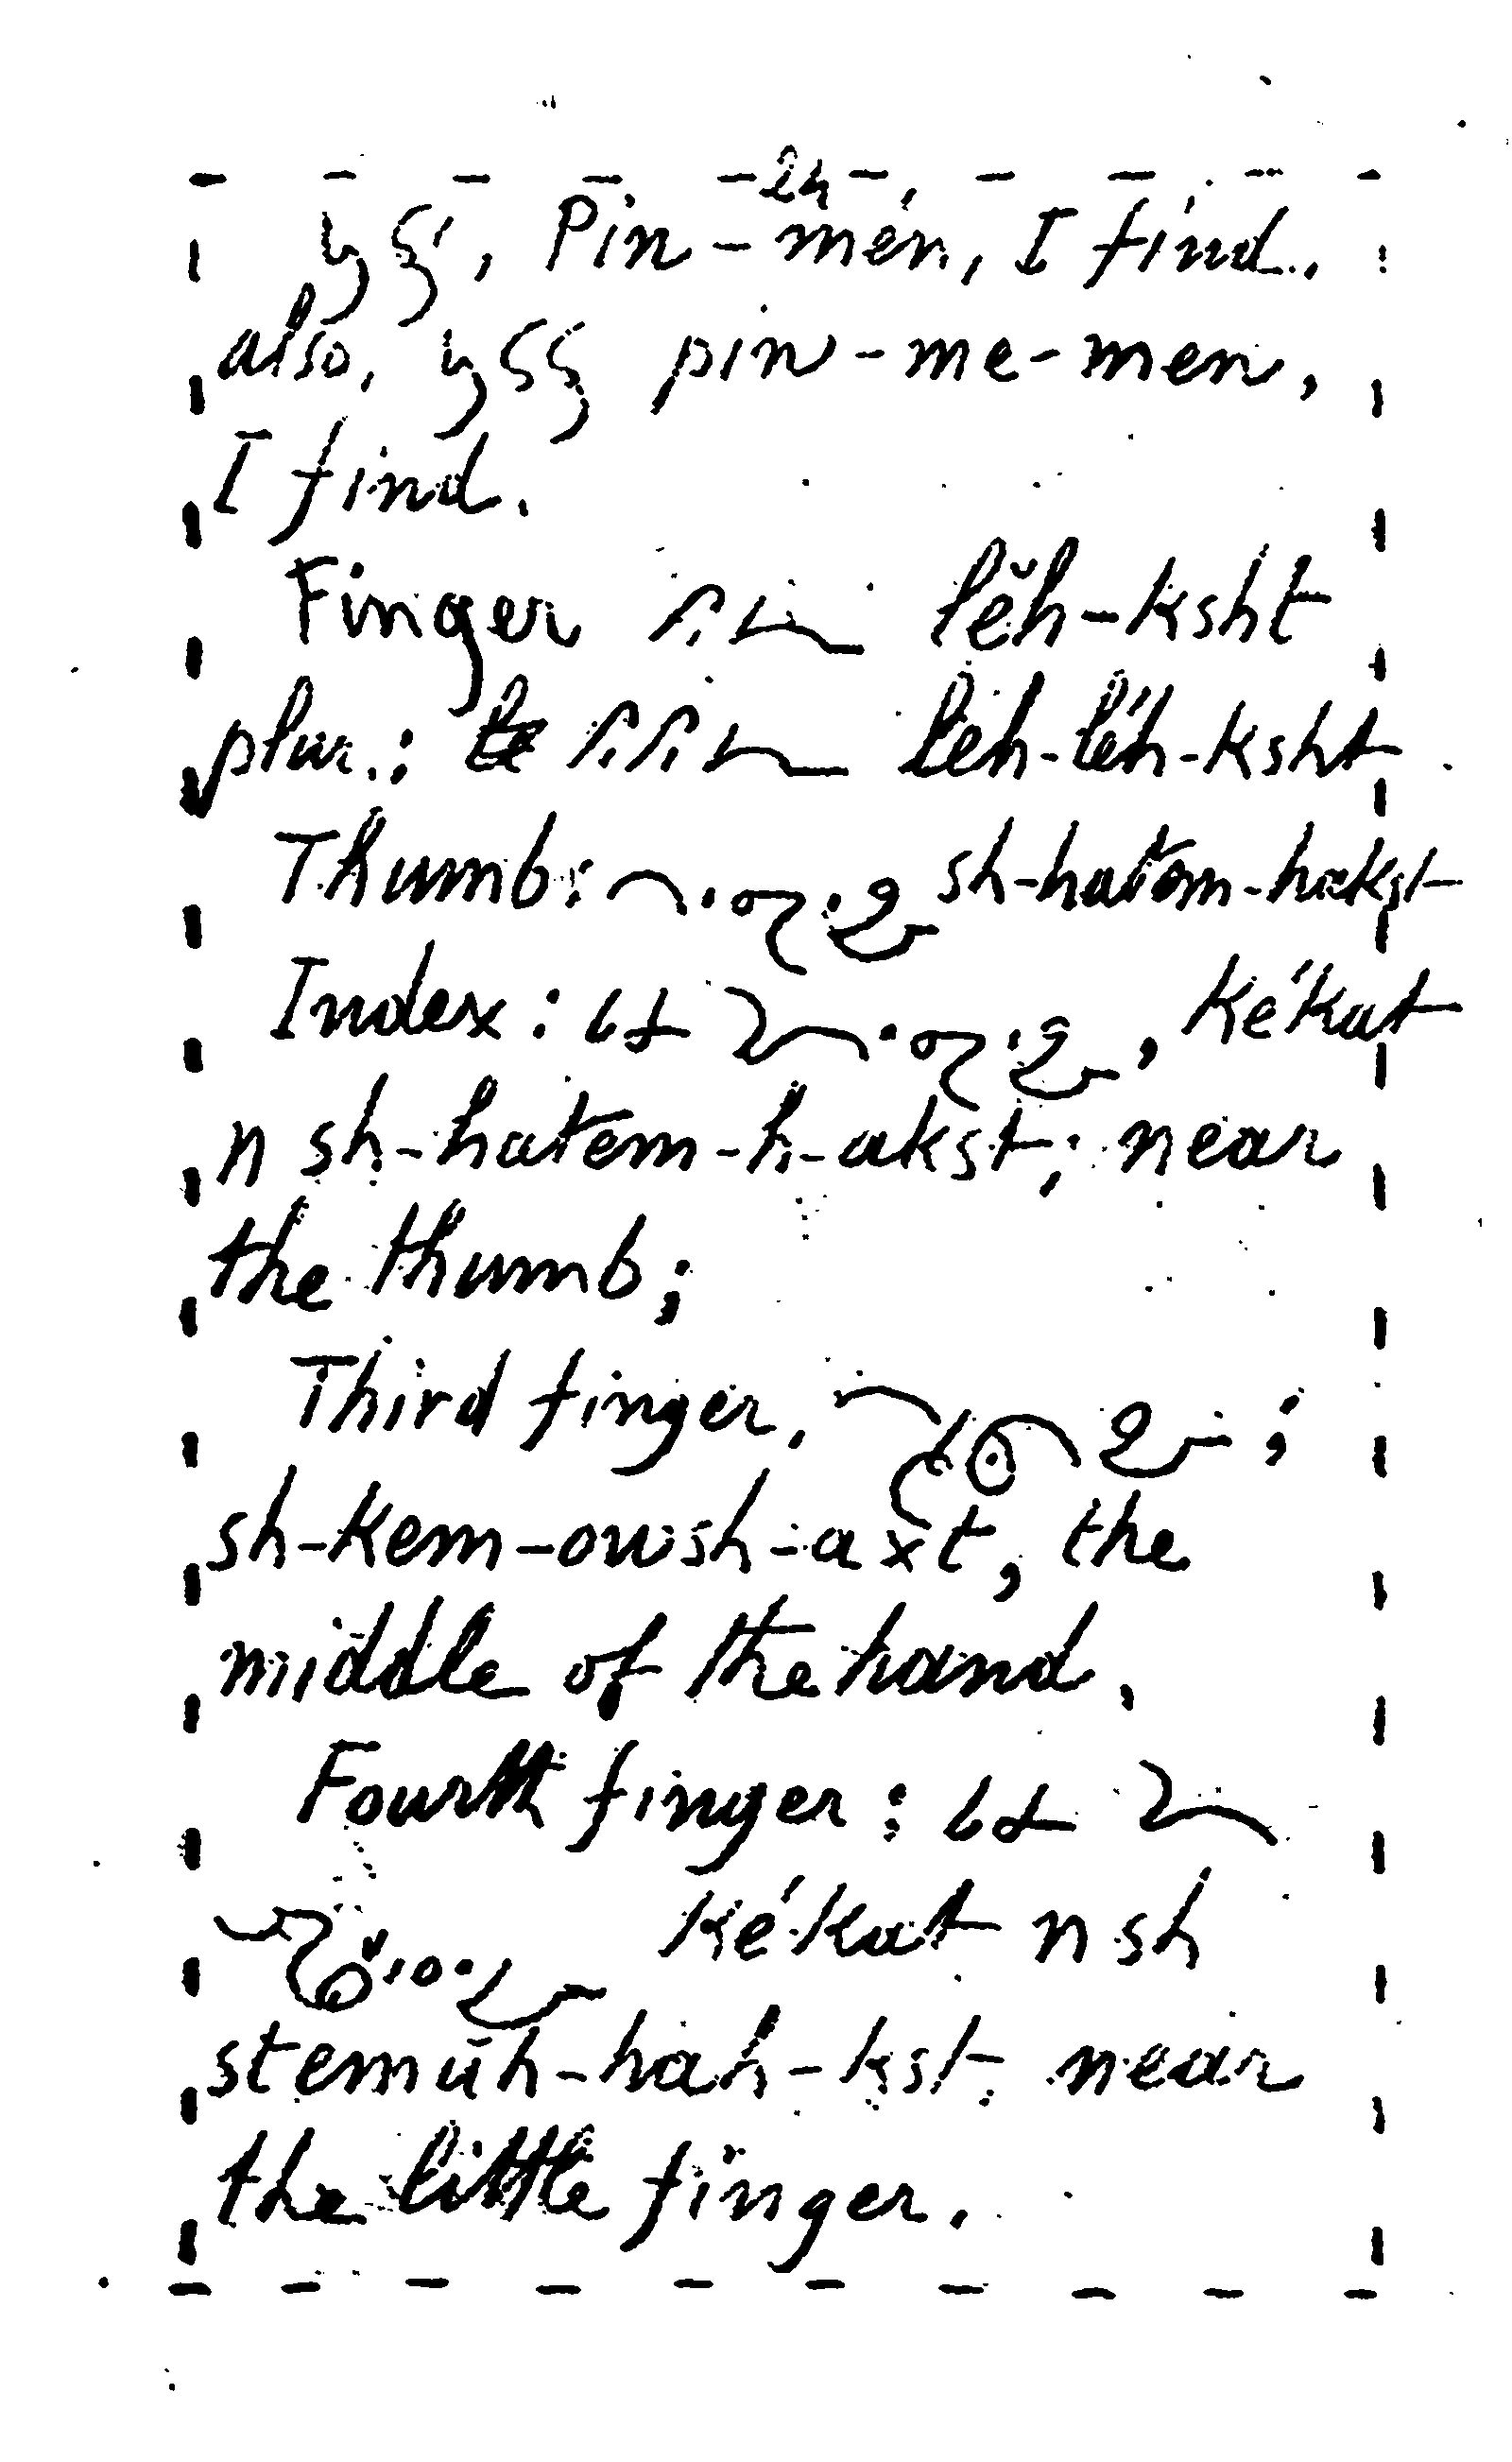 24
, Pin-mén, I find.
also, pin-me-men,
I find.
Finger lĕh-ksht
plur.: leh-léh-ksht
Thumb: sh-hatem-hakst
Index: , Kékat
n sh-hatem-h-akst; near
the thumb;
Third finger. ;
sh-kem-owsh-axt, the
middle of the hand.
Fourth finger:
Kékat n sh
stemŭh-hah-kst. near
the little finger.